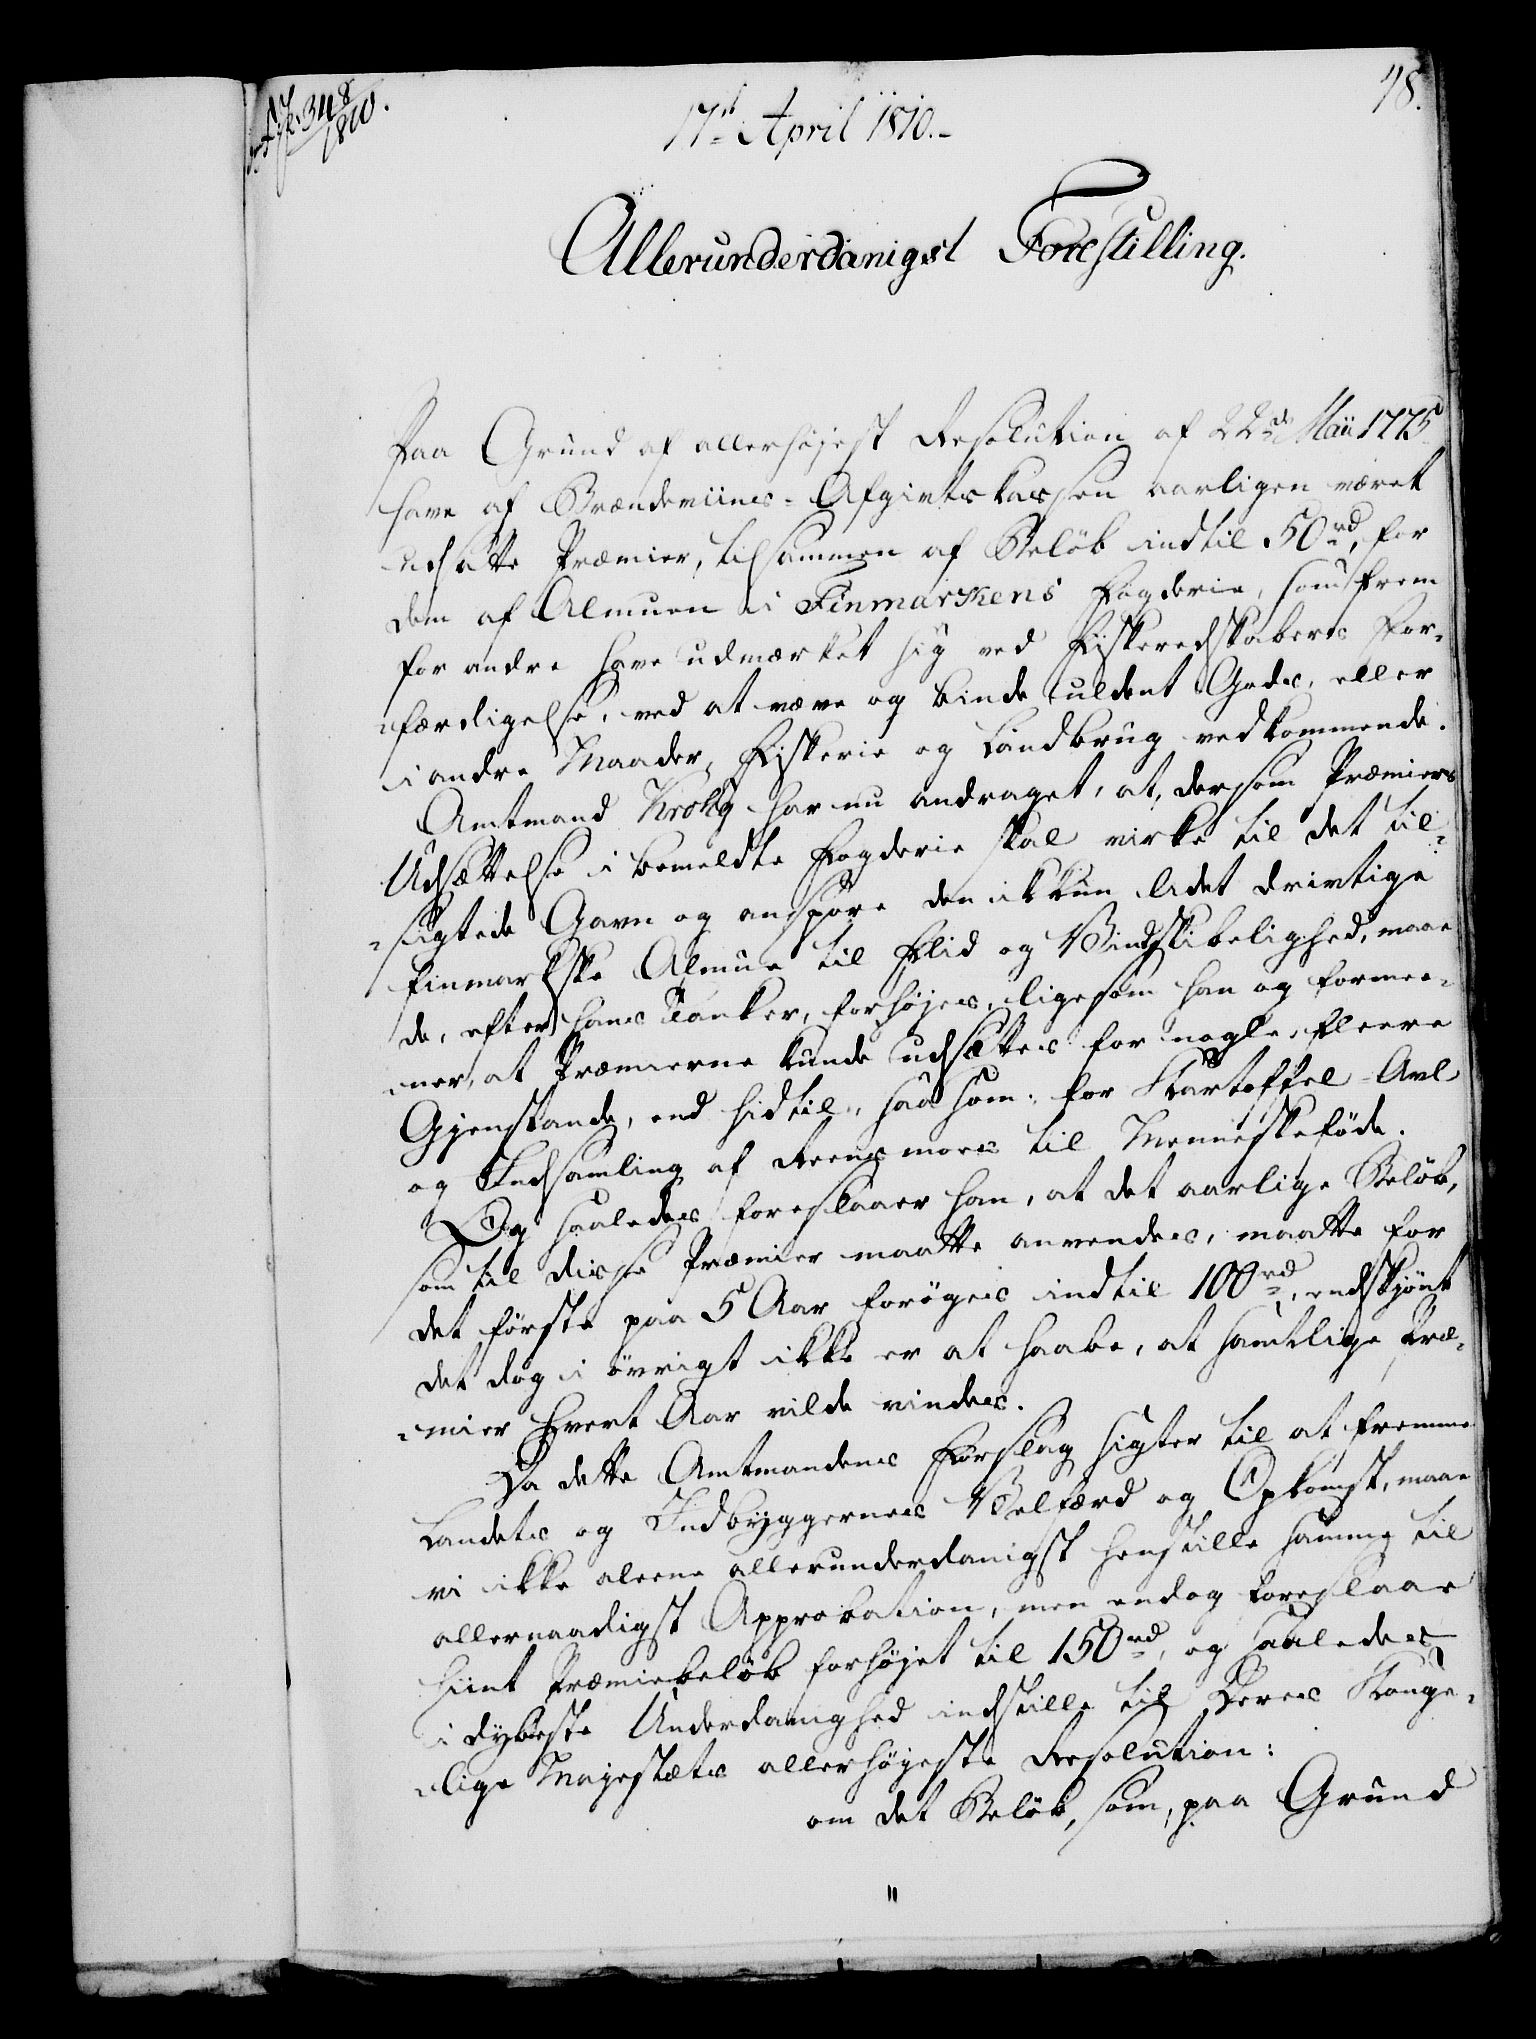 48.
348
1810.
17de April 1810.-
Allerunderdanigst Forestilling.
Paa Grund af allerhøjest Resolution af 22de Maii 1775
have af Brændeviins-Afgivtskassen aarligen været
udsatte Præmier, tilsammen af Beløb indtil 50 rd, for
dem af Almuen i Finmarkens Fogderie, som frem
for andre have udmærket sig ved Fiskeredskabers For-
færdigelse, ved at væve og binde uldent Gods, eller
i andre Maader, Fiskerie og Landbrug vedkommende.
Amtmand Krohg har nu andraget, at, dersom Præmiers
Udsættelse i bemeldte Fogderie skal virke til det til-
sigtede Gavn og anspore den ikkun lidet drivtige
finmarkske Almue til Flid og Vindskibelighed, maae
de, efter hans Tanker, forhøjes, ligesom han og formee-
ner, at Præmierne kunde udsættes for nogle fleere
Gjenstande, end hidtil, saasom: for Kartoffel-Avl
og Indsamling af Reensmoes til Menneskeføde.
Og saaledes foreslaaer han, at det aarlige Beløb,
som til disse Præmier maatte anvendes, maatte for
det første paa 5 Aar forøges indtil 100 rd, endskjønt
det dog i øvrigt ikke er at haabe, at samtlige Præ-
mier hvert Aar vilde vindes.
Da dette Amtmandens Forslag sigter til at fremme
Landets og Indbyggernes Velfærd og Opkomst, maae
vi ikke alene allerunderdanigst henstille samme til
allernaadigst Approbation, men endog foreslaae
hiint Præmiebeløb forhøjet til 150 rd, og saaledes
i dybeste Underdanighed indstille til Deres Konge-
lige Majestæts allerhøjeste Resolution:
om det Beløb, som, paa Grund
"